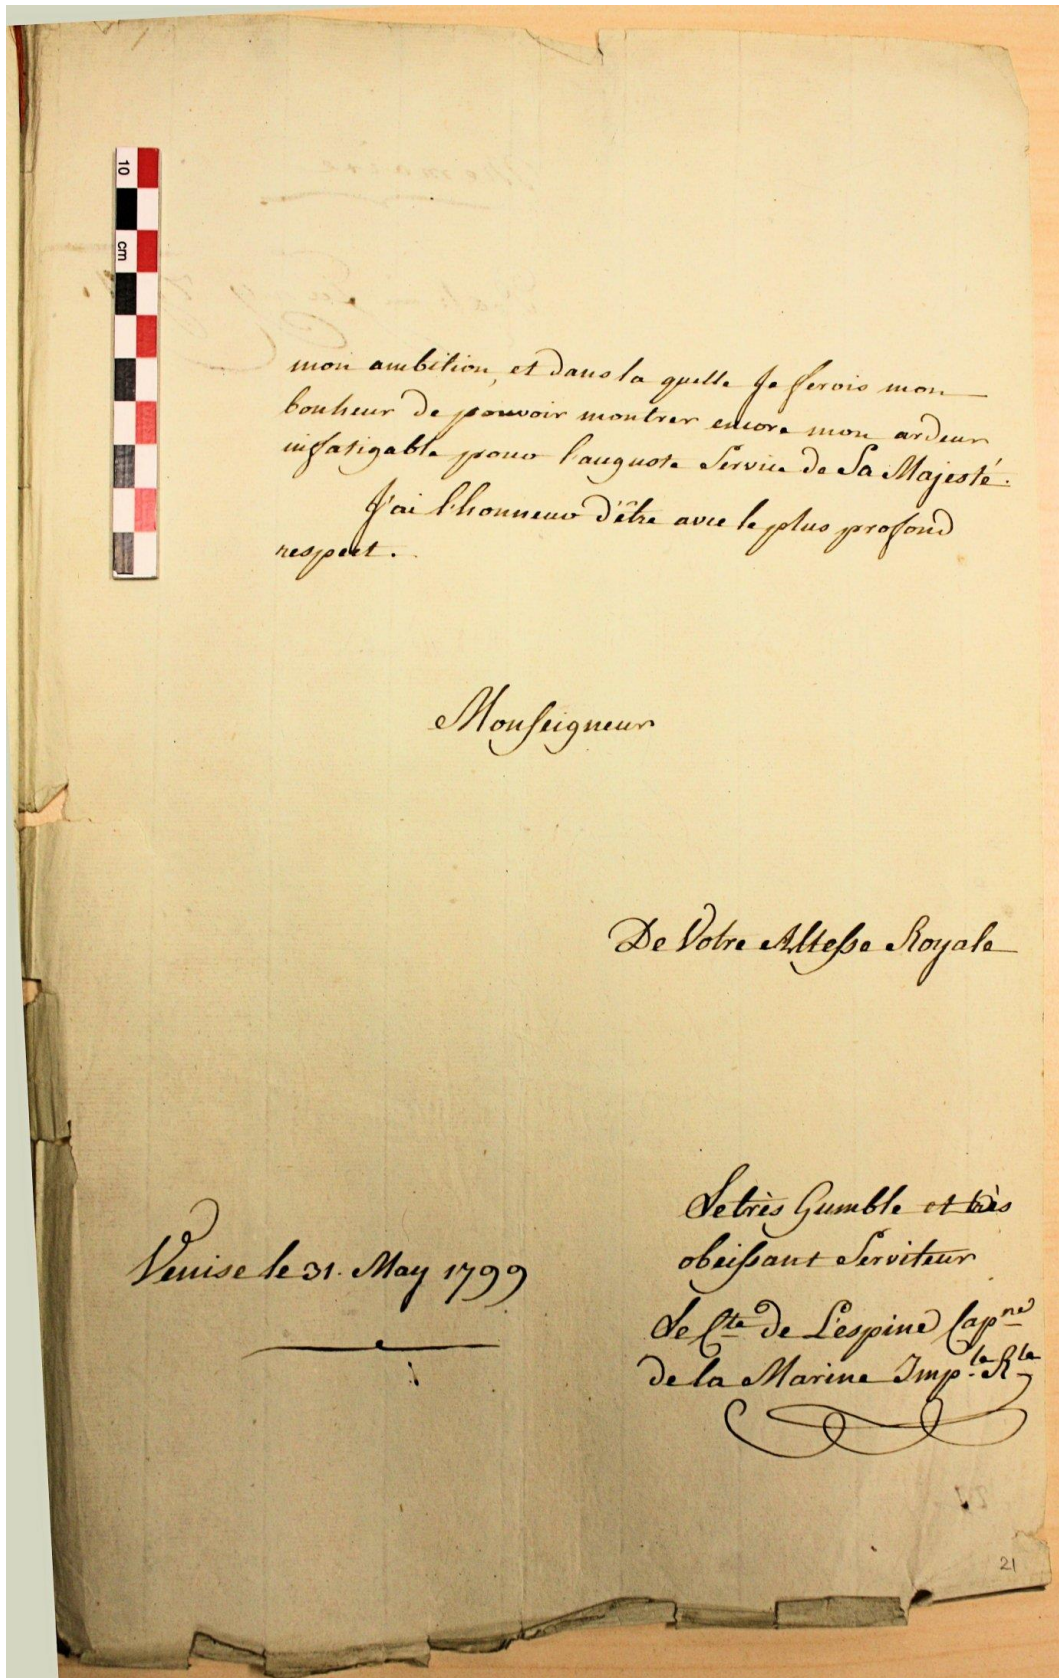 mon ambition, et dans la quelle Je ferois mon
bonheur de pouvoir montrer encore mon ardeur
infatigable pour l'auguste Service de Sa Majesté.
J'ai l'honneur d'être avec le plus profond
respect.
Monseigneur
De Votre Altesse Royale
Le très humble et très
obeissant Serviteur
Venise le 31. May 1799
Le Cte de L'espine Capne
de la Marine Imp.le Rle
21
10
cm